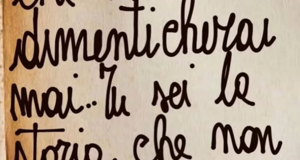 dimenticherai
mai.. Tu sei la
storia che non